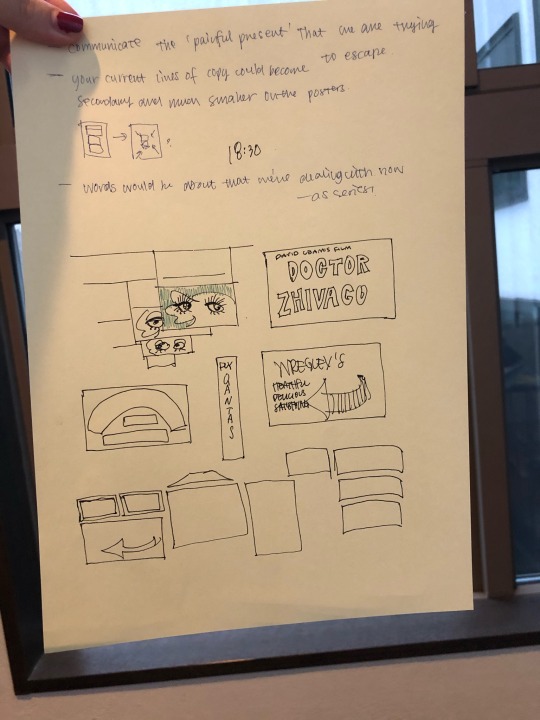 communicate the 'painful present' that we are trying
to escape.
– your current lines of copy could become
secondary and much smaller on the posters.
?
18:30
– words would be about that we're dealing with now
– as series
DAVID LEANS FILM
DOCTOR
ZHIVAGO
WREGLEY'S
HEALTHFUL
DELICIOUS
FLY
QANTAS